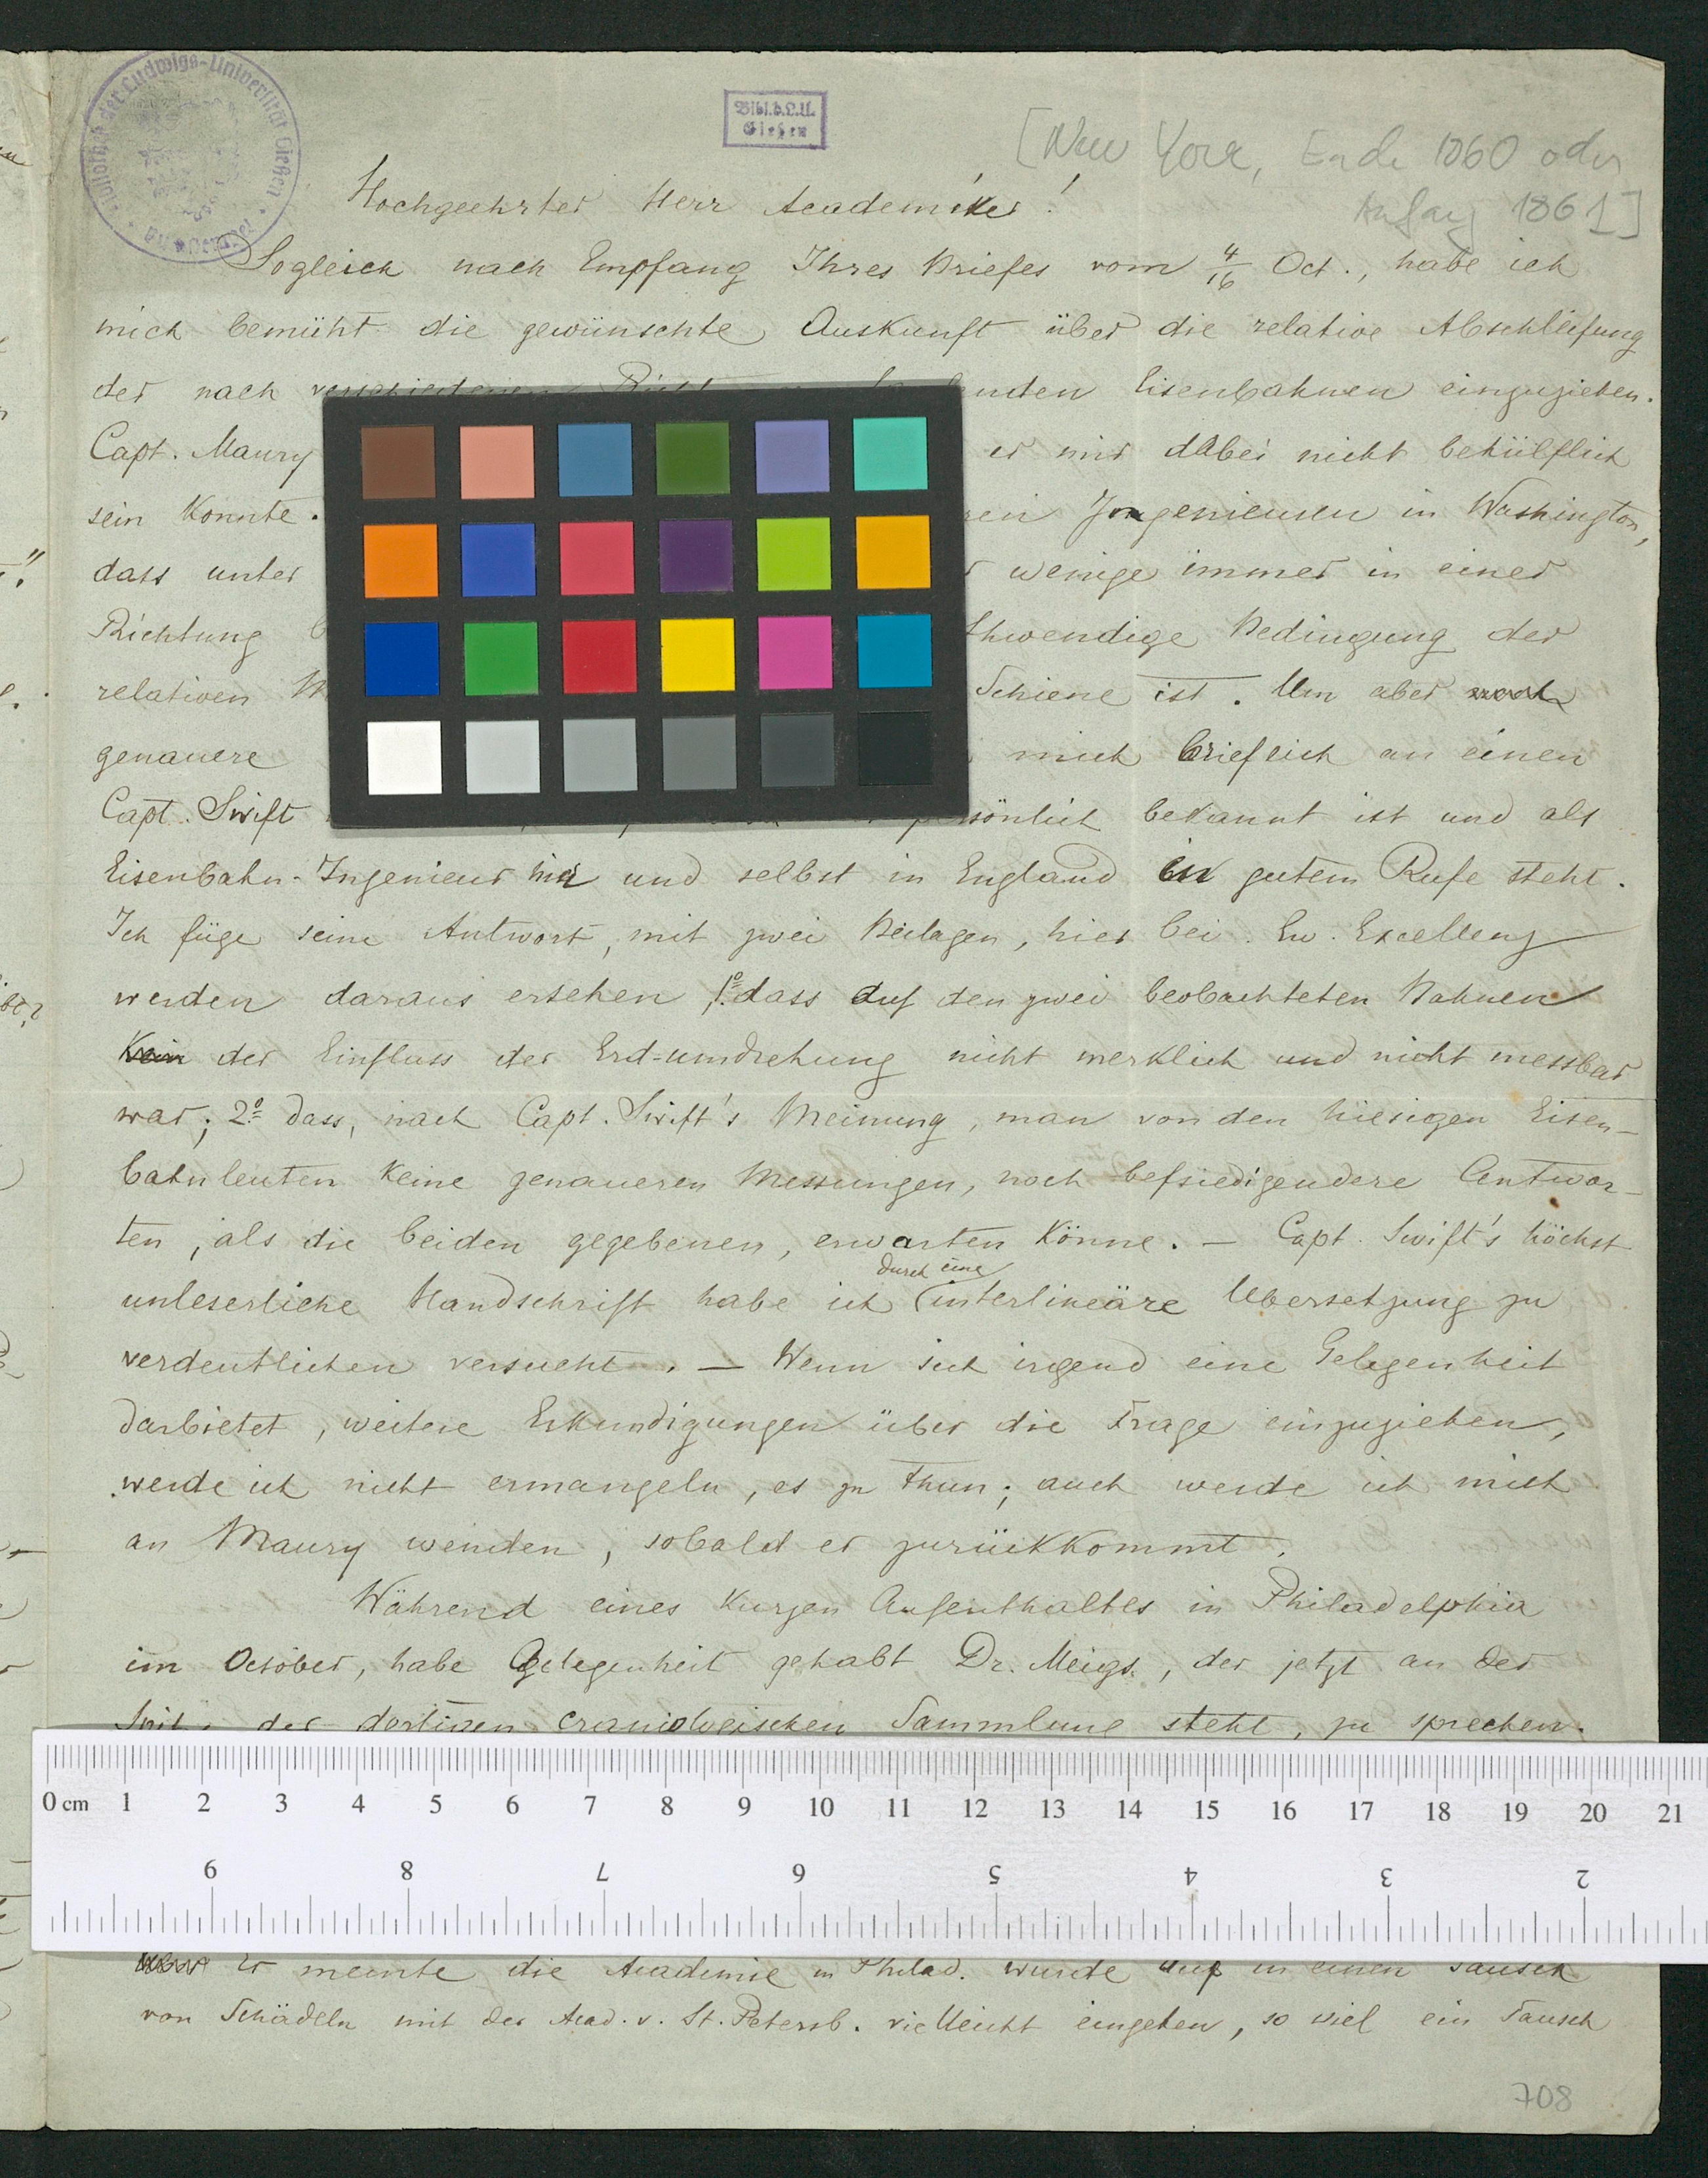 Bibliothek der Ludwigs-Universität Gießen
Bibl.d.L.U.
Gießen
[New York, Ende 1860 oder
Anfang 1861]
Hochgeehrter Herr Academiker!
Sogleich nach Empfang Ihres Briefes vom 4/16 Oct., habe ich
mich bemüht die gewünschte Auskunft über die relative Abschleifung
der nach verschiedenen laufenden Eisenbahnen einzuziehen.
Capt. Maury er mir dabei nicht behülflich
sein konnte. Ingenieuren in Washington,
dass unter wenige immer in einer
Richtung nothwendige Bedingung der
relativen Schiene ist. Um aber noch
genauere mich brieflich an einen
Capt. Swift persönlich bekannt ist und als
Eisenbahn-Ingenieur hier und selbst in England in gutem Rufe steht.
Ich füge seine Antwort, mit zwei Beilagen, hier bei. Ew. Excellenz
werden daraus ersehen 1º dass auf den zwei beobachteten Bahnen
kein der Einfluss der Erd-umdrehung nicht merklich und nicht messbar
war; 2º dass, nach Capt. Swift's Meinung, man von den hiesigen Eisen-
bahnleuten keine genaueren Messungen, noch befriedigendere Antwor-
ten, als die beiden gegebenen, erwarten könne. — Capt. Swift's höchst
unleserliche Handschrift habe ich durch eine interlineäre Uebersetzung zu
verdeutlichen versucht. — Wenn sich irgend eine Gelegenheit
darbietet, weitere Erkundigungen über die Frage einzuziehen,
werde ich nicht ermangeln, es zu thun; auch werde ich mich
an Maury wenden, sobald er zurückkommt.
Während eines kurzen Aufenthaltes in Philadelphia
im October, habe Gelegenheit gehabt Dr. Meigs, der jetzt an der
Spitze der dortigen craniologischen Sammlung steht, zu sprechen.
0 cm 1 2 3 4 5 6 7 8 9 10 11 12 13 14 15 16 17 18 19 20 21
9 8 7 6 5 4 3 2
Er meinte die Academie in Philad. würde auf in einen Tausch
von Schädeln mit der Acad. v. St. Petersb. vielleicht eingehen, so viel ein Tausch
708